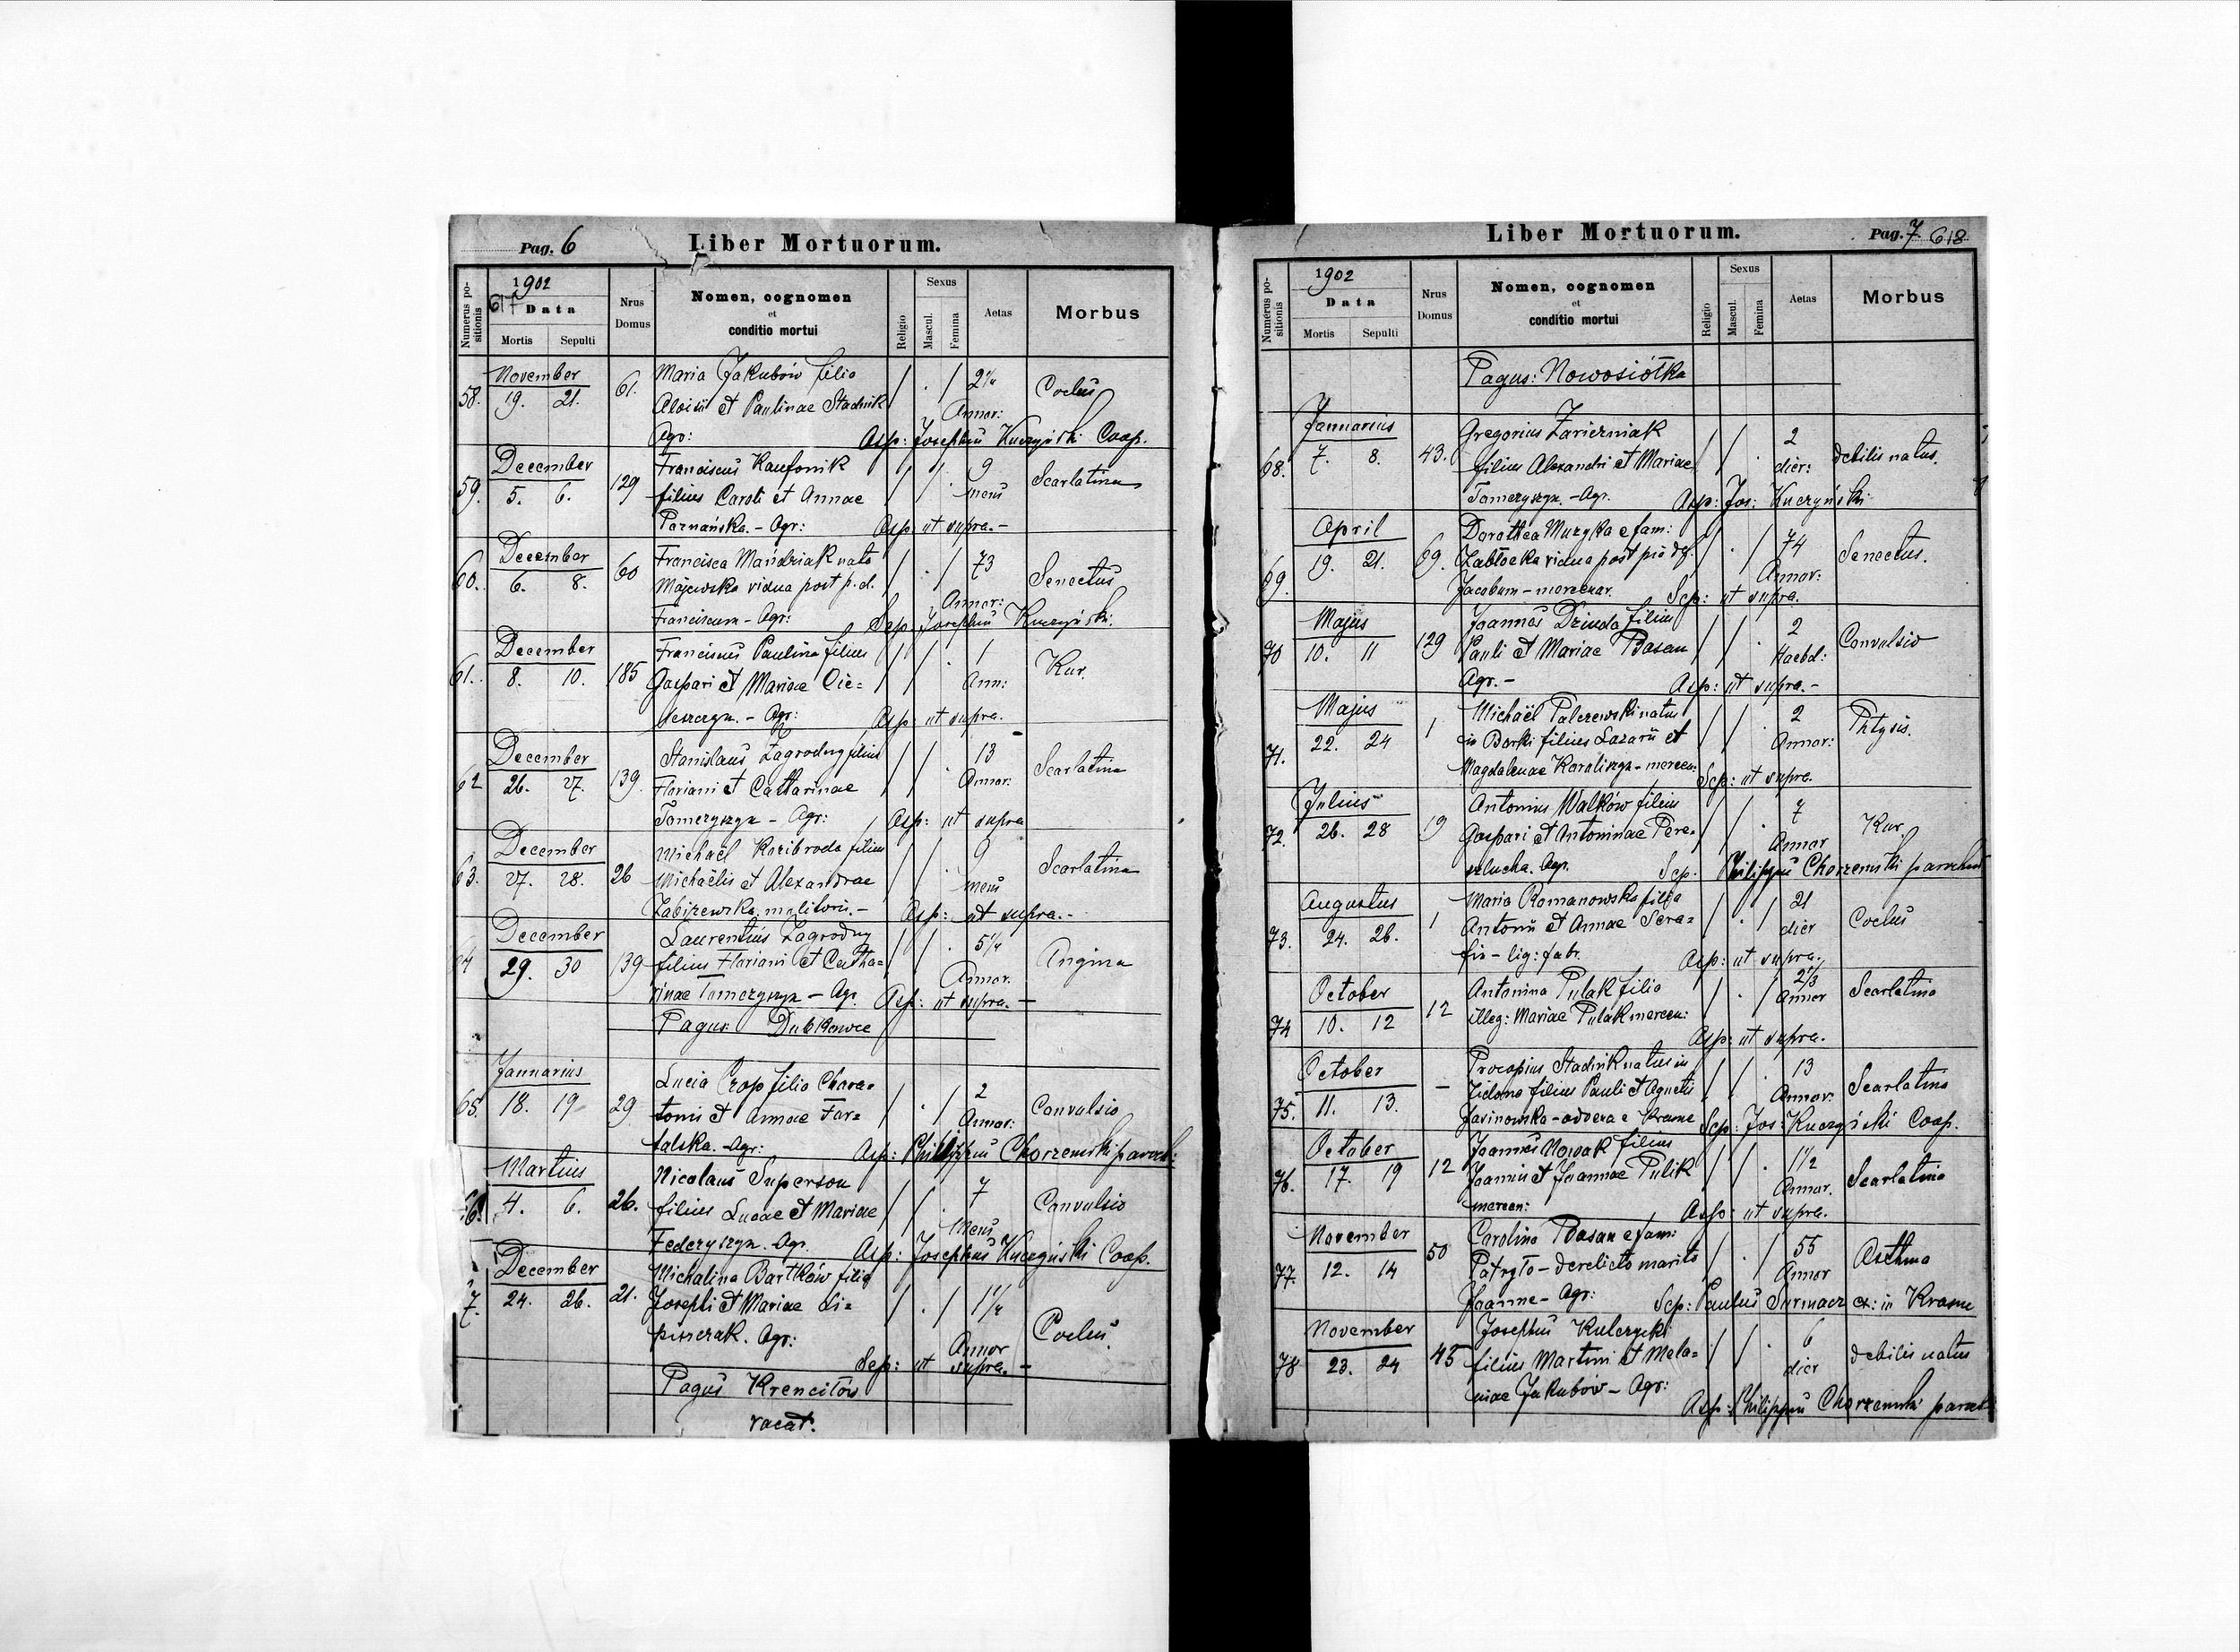 Pag. 6 Liber Mortuorum.
Numerus positionis
1902
617 Data
Mortis Sepulti
Nrus Domus
Nomen, cognomen
et
conditio mortui
Religio
Sexus
Mascul. Femina
Aetas
Morbus
November
58. 19. 21. 61. Maria Jakubów filia / . / 2 1/4 Coelus
Aloisii et Paulinae Stadnik Annor:
Agr: Asp: Josephus Kuczyński Coop.
December
59. 5. 6. 129 Franciscus Kaufonik / / . 9 Scarlatina
filius Caroli et Annae mens
Poznańska. - Agr: Asp: ut supra. -
December
60. 6. 8. 60 Francisca Mańdziak nata / . / 73 Senectus
Majewska vidua post p. d. Annor:
Franciscum - Agr: Sep: Josephus Kuczyński.
December
61. 8. 10. 185 Franciscus Paulina filius / / . 1 Kur.
Gaspari et Mariae Cie= Ann:
Agr: Asp: ut supra.
December
62 26. 27. 139. Stanislaus Zagrodny filius / / . 13 Scarlatina
Floriani et Catharinae Annor:
Tomczyszyn - Agr: Asp: ut supra
December
63. 27. 28. 26 Michaël Kozibroda filius / / . 9 Scarlatina
Michaëlis et Alexandrae mens
molitoris. - Asp: ut supra. -
December
64 29. 30 139 Laurentius Zagrodny / / . 5 1/4 Angina
filius Floriani et Catha= Annor.
rinae Tomczyszyn - Agr. Asp: ut supra. -
Pagus Dubkowce
Januarius
65. 18. 19 29 Lucia Czop filia Chara= / . / 2 Convulsio
tonis et Annae Far= Annor:
talska. - Agr: Asp: Philippus Chorzemski paroch:
Martius
66. 4. 6. 26. Nicolaus Superson / / . 7 Convulsio
filius Lucae et Mariae Mens
Federyszyn. Agr. Asp: Josephus Kuczyński Coop.
December
7. 24. 26. 21. Michalina Bartków filia / . / 1 1/4 Coelus.
Josephi et Mariae Li= Annor
piszczak. Agr: Sep: ut supra. -
Pagus Krencilów
vacat.
Liber Mortuorum. Pag. 7 618
Numerus positionis
1902
Data
Mortis Sepulti
Nrus Domus
Nomen, cognomen
et
conditio mortui
Religio
Sexus
Mascul. Femina
Aetas
Morbus
Pagus: Nowosiółka
Januarius
68. 7. 8. 43. Gregorius Zarierniak / / . 2 debilis natus.
filius Alexandri et Mariae dier:
Tomczyszyn. - Agr. Asp: Jos: Kuczyński
April
69. 19. 21. 69. Dorothea Muzyka e fam: / . / 74 Senectus.
Zabłocka vidua post pie df. Annor:
Jacobum - mercenar. Sep: ut supra.
Majus
70 10. 11 129 Joannes Dziuda filius / / . 2 Convulsio
Pauli et Mariae Basan Haebd:
Agr. - Asp: ut supra. -
Majus
71. 22. 24 1 Michaël Palczewski natus / / . 2 Phtysis.
in Borki filius Lazarii et Annor:
Magdalenae Karaliszyn - mercen: Sep: ut supra.
Julius
72. 26. 28 19 Antonius Walków filius / / . 7 Kur.
Gaspari et Antoninae Pere= Annor
szlucha. Agr. Sep. Philippus Chorzemski parochus
Augustus
73. 24. 26. 1 Maria Romanowska filia / . / 21 Coelus
Antonii et Annae Sera= dier
fin - lig: fabr. Asp: ut supra.
October
74 10. 12 12 Antonina Pulak filia / . / 2 1/3 Scarlatina
illeg: Mariae Pulak mercen: Annor
Asp: ut supra.
October
75. 11. 13. - Procopius Stadnik natus in / / . 13 Scarlatina
filius Pauli et Agnetis Annor:
Jasinowska - advena e Krasne Sep: Jos: Kuczyński Coop.
October
76. 17. 19 12 Joannes Nowak filius / / . 1 1/2 Scarlatina
Joannis et Joannae Pulik Annor.
mercen: Asp: ut supra.
November
77. 12. 14 50 Carolina Basan e fam: / . / 55 Asthma
Patryło - derelicto marito Annor
Joanne - Agr: Sep: Paulus Surmacz ex: in Krasne
November
78 23. 24 45 Josephus Kulczycki / / . 6 debilis natus
filius Martini et Mela= dier
niae Jakubów - Agr: Asp: Philippus Chorzemski paroch